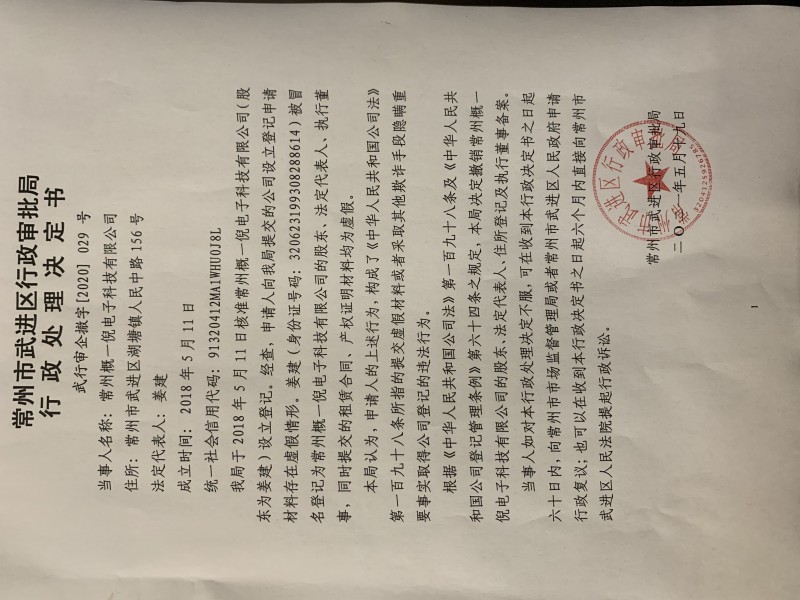 常州市武进区行政审批局
行政处理决定书
武行审企撤字[2020] 029 号
当事人名称：常州概一倪电子科技有限公司
住所：常州市武进区湖塘镇人民中路 156 号
法定代表人：姜建
成立时间：2018 年 5 月 11 日
统一社会信用代码：91320412MA1WHU0J8L
我局于 2018 年 5 月 11 日核准常州概一倪电子科技有限公司（股
东为姜建）设立登记。经查，申请人向我局提交的公司设立登记申请
材料存在虚假情形。姜建（身份证号码：320623199308288614）被冒
名登记为常州概一倪电子科技有限公司的股东、法定代表人、执行董
事，同时提交的租赁合同、产权证明材料均为虚假。
本局认为，申请人的上述行为，构成了《中华人民共和国公司法》
第一百九十八条所指的提交虚假材料或者采取其他欺诈手段隐瞒重
要事实取得公司登记的违法行为。
根据《中华人民共和国公司法》第一百九十八条及《中华人民共
和国公司登记管理条例》第六十四条之规定，本局决定撤销常州概一
倪电子科技有限公司的股东、法定代表人、住所登记及执行董事备案。
当事人如对本行政处理决定不服，可在收到本行政决定书之日起
六十日内，向常州市市场监督管理局或者常州市武进区人民政府申请
行政复议；也可以在收到本行政决定书之日起六个月内直接向常州市
武进区人民法院提起行政诉讼。
常州市武进区行政审批局
二〇二一年五月十九日
1